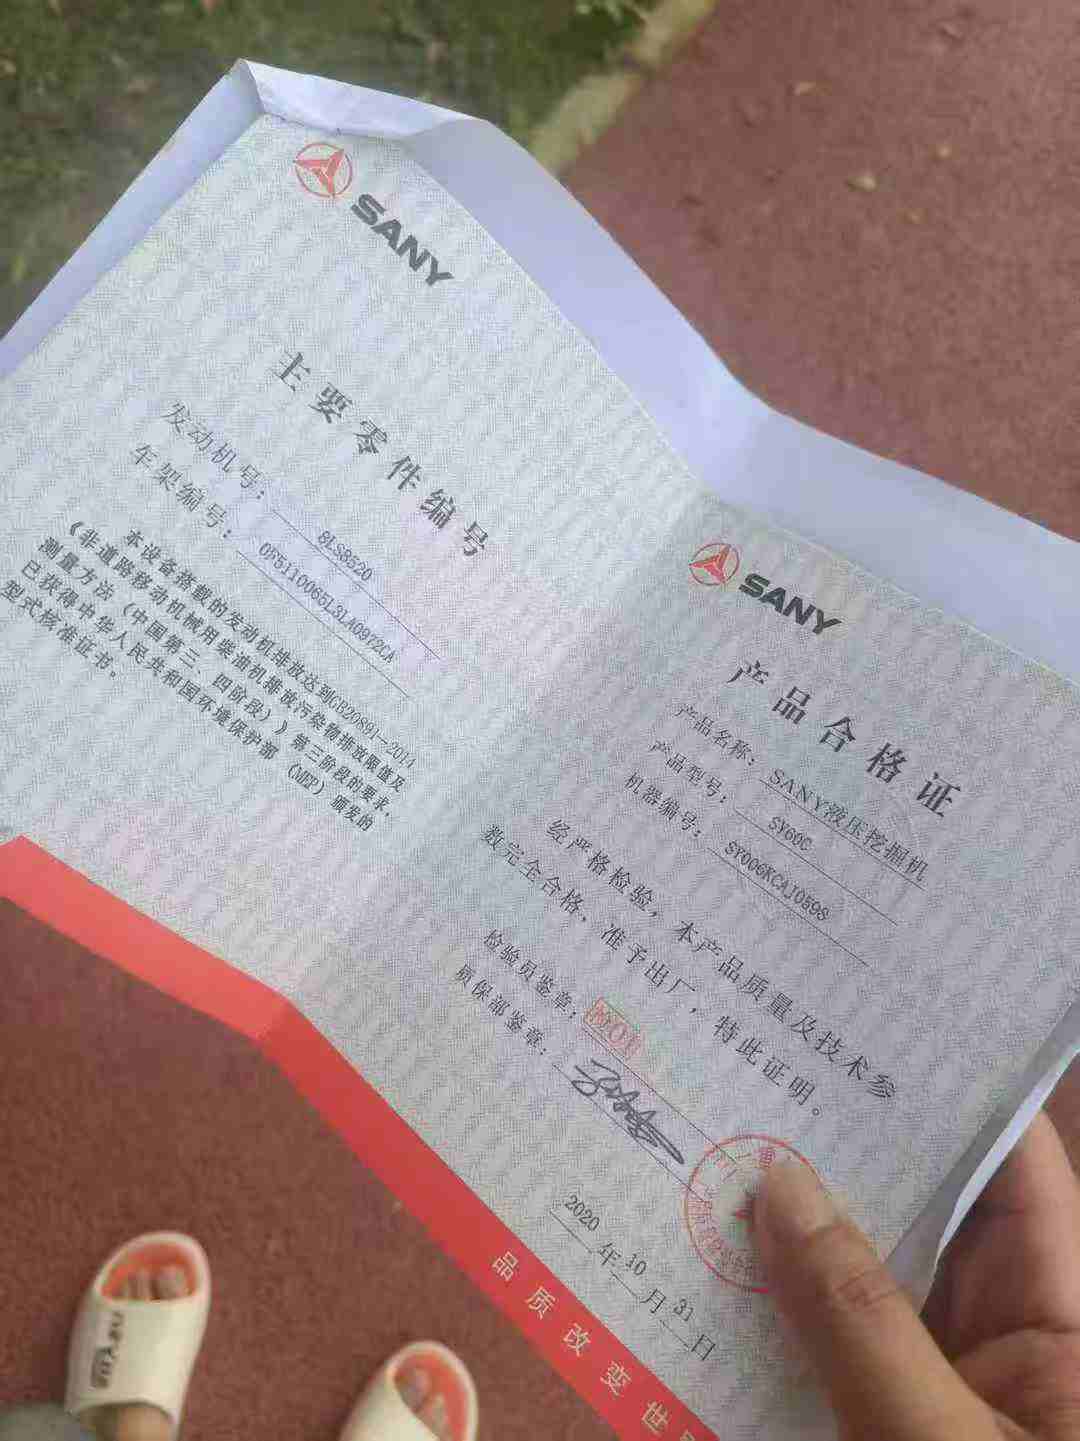 SANY
主要零件编号
发动机号：8LS8520
车架编号：0B5110065L3LA0972CA
本设备搭载的发动机排放达到GB20891-2014
《非道路移动机械用柴油机排放污染物排放限值及
测量方法（中国第三、四阶段）》第三阶段的要求，
已获得中华人民共和国环境保护部（MEP）颁发的
型式核准证书。
SANY
产品合格证
产品名称：SANY液压挖掘机
产品型号：SY60C
机器编号：SY006KCAJ0598
经严格检验，本产品质量及技术参
数完全合格，准予出厂，特此证明。
检验员鉴章：
质保部鉴章：
2020年10月31日
品质改变世